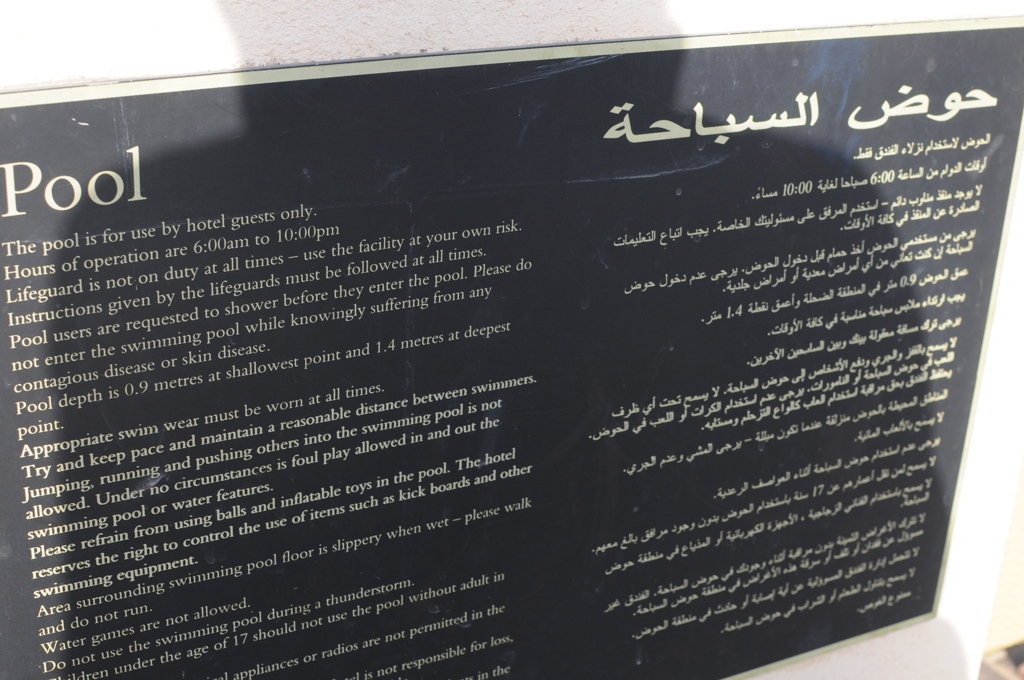 Pool
The pool is for use by hotel guests only.
Hours of operation are 6:00am to 10:00pm
Lifeguard is not on duty at all times – use the facility at your own risk.
Instructions given by the lifeguards must be followed at all times.
Pool users are requested to shower before they enter the pool. Please do
not enter the swimming pool while knowingly suffering from any
contagious disease or skin disease.
Pool depth is 0.9 metres at shallowest point and 1.4 metres at deepest
point.
Appropriate swim wear must be worn at all times.
Try and keep pace and maintain a reasonable distance between swimmers.
Jumping, running and pushing others into the swimming pool is not
allowed. Under no circumstances is foul play allowed in and out the
swimming pool or water features.
Please refrain from using balls and inflatable toys in the pool. The hotel
reserves the right to control the use of items such as kick boards and other
swimming equipment.
Area surrounding swimming pool floor is slippery when wet – please walk
and do not run.
Water games are not allowed.
Do not use the swimming pool during a thunderstorm.
Children under the age of 17 should not use the pool without adult in
appliances or radios are not permitted in the
is not responsible for loss,
in the
حوض السباحة
الحوض لاستخدام نزلاء الفندق فقط.
أوقات الدوام من الساعة 6:00 صباحا لغاية 10:00 مساء.
لا يوجد منقذ مناوب دائم – استخدم المرفق على مسئوليتك الخاصة. يجب اتباع التعليمات
الصادرة عن المنقذ في كافة الأوقات.
يرجى من مستخدمي الحوض أخذ حمام قبل دخول الحوض. يرجى عدم دخول حوض
السباحة إن كنت تعاني من أي أمراض معدية أو أمراض جلدية.
عمق الحوض 0.9 متر في المنطقة الضحلة وأعمق نقطة 1.4 متر.
يجب ارتداء ملابس سباحة مناسبة في كافة الأوقات.
يرجى ترك مسافة معقولة بينك وبين السابحين الآخرين.
لا يسمح بالقفز والجري ودفع الأشخاص إلى حوض السباحة. لا يسمح تحت أي ظرف
اللعب في حوض السباحة أو النافورات. يرجى عدم استخدام الكرات أو اللعب في الحوض.
يحتفظ الفندق بحق مراقبة استخدام العاب كألواح التزحلم ومستابه.
المناطق المحيطة بالحوض منزلقة عندما تكون مبللة – يرجى المشي وعدم الجري.
لا يسمح بالألعاب المائية.
يرجى عدم استخدام حوض السباحة أثناء العواصف الرعدية.
لا يسمح لمن تقل أعمارهم عن 17 سنة باستخدام الحوض بدون وجود مرافق بالغ معهم.
لا يسمح باستخدام القناني الزجاجية ، الأجهزة الكهربائية أو المذياع في منطقة حوض
السباحة.
لا تترك الأغراض الثمينة بدون مراقبة أثناء وجودك في حوض السباحة. الفندق غير
مسؤول عن فقدان أو تلف أو سرقة هذه الأغراض في منطقة حوض السباحة.
لا تتحمل إدارة الفندق المسؤولية عن أية إصابة أو حادث في منطقة الحوض.
لا يسمح بتناول الطعام أو الشراب في حوض السباحة.
ممنوع الغوص.